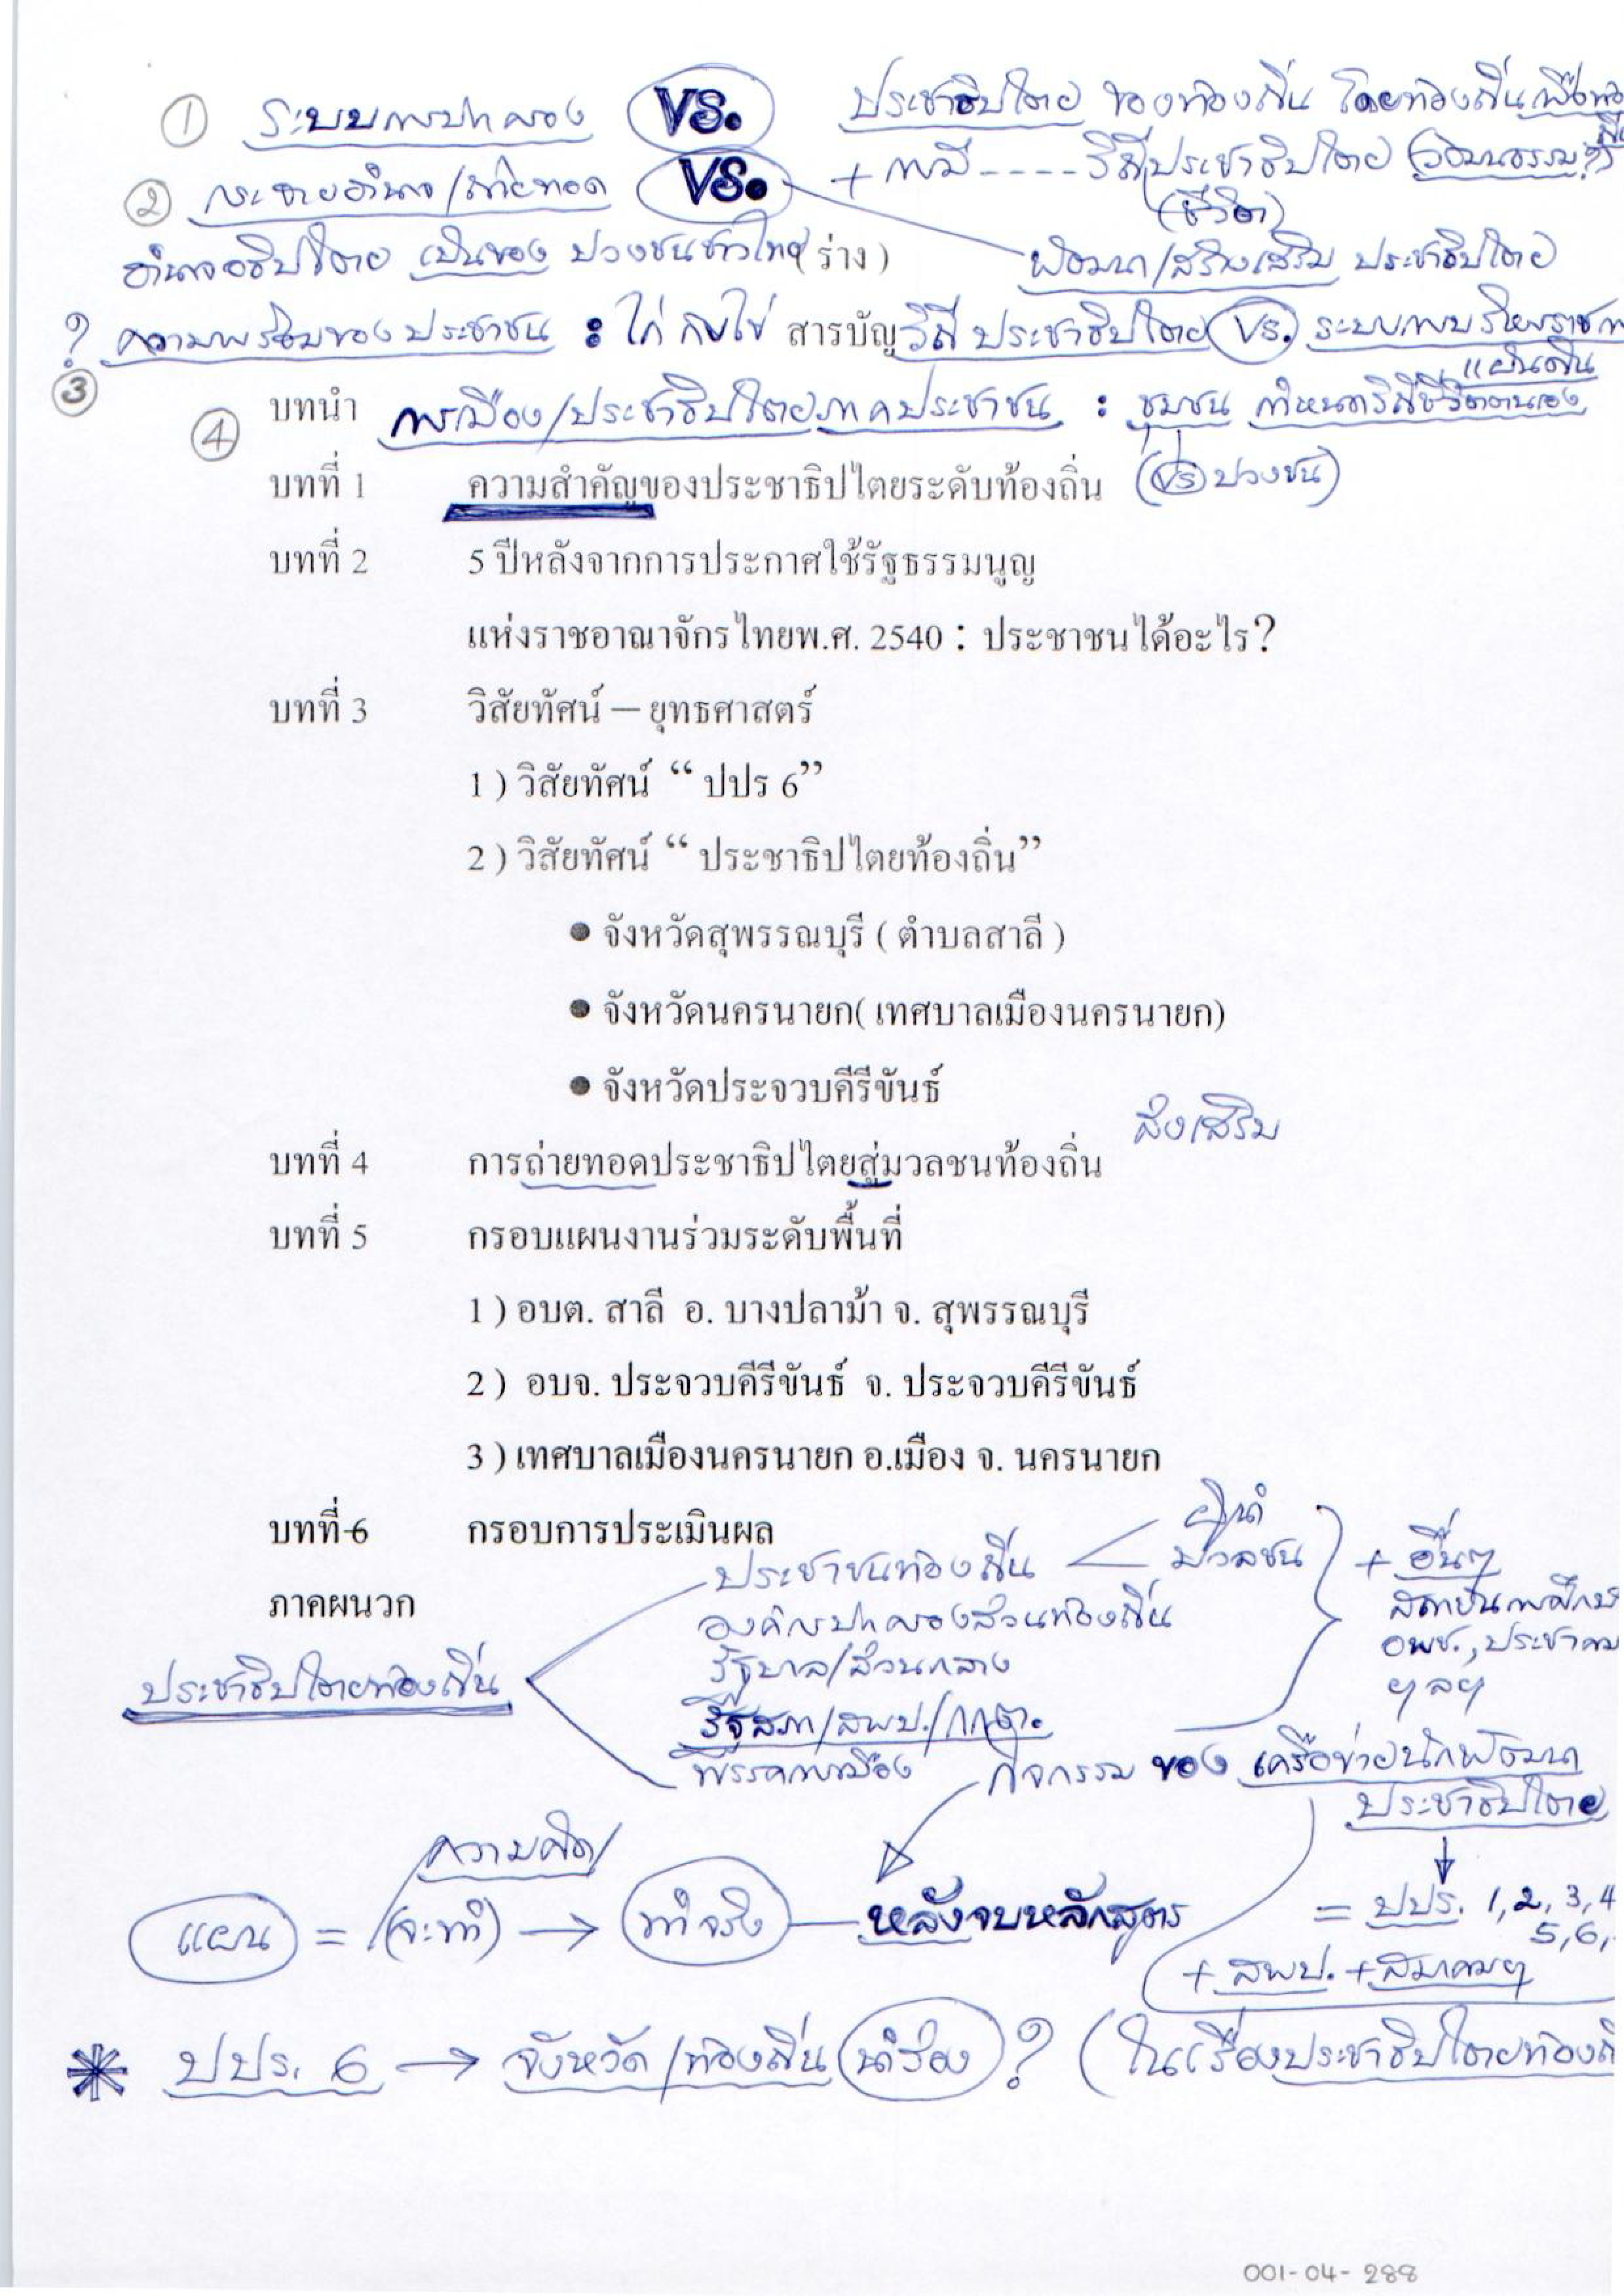 ① ระบบการปกครอง VS. ประชาธิปไตย ของท้องถิ่น โดยท้องถิ่น เพื่อท้องถิ่น
② กระจายอำนาจ/ถ่ายทอด VS. + การมี ---- วิถีประชาธิปไตย (วัฒนธรรม?)
(ชีวิต)
อำนาจอธิปไตย เป็นของ ปวงชนชาวไทย (ร่าง) พัฒนา/สร้างเสริม ประชาธิปไตย
? ความพร้อมของประชาชน : ไก่ กับไข่ สารบัญ วิถีประชาธิปไตย VS. ระบบการบริหารราชการ
แผ่นดิน
③
④ บทนำ การเมือง/ประชาธิปไตยภาคประชาชน : ชุมชน กำหนดวิถีชีวิตตนเอง
บทที่ 1 ความสำคัญของประชาธิปไตยระดับท้องถิ่น (VS ปวงชน)
บทที่ 2 5 ปีหลังจากการประกาศใช้รัฐธรรมนูญ
แห่งราชอาณาจักรไทยพ.ศ. 2540 : ประชาชนได้อะไร?
บทที่ 3 วิสัยทัศน์ – ยุทธศาสตร์
1 ) วิสัยทัศน์ “ ปปร 6”
2 ) วิสัยทัศน์ “ ประชาธิปไตยท้องถิ่น”
● จังหวัดสุพรรณบุรี ( ตำบลสาลี )
● จังหวัดนครนายก( เทศบาลเมืองนครนายก)
● จังหวัดประจวบคีรีขันธ์
ส่งเสริม
บทที่ 4 การถ่ายทอดประชาธิปไตยสู่มวลชนท้องถิ่น
บทที่ 5 กรอบแผนงานร่วมระดับพื้นที่
1 ) อบต. สาลี อ. บางปลาม้า จ. สุพรรณบุรี
2 ) อบจ. ประจวบคีรีขันธ์ จ. ประจวบคีรีขันธ์
3 ) เทศบาลเมืองนครนายก อ.เมือง จ. นครนายก
บทที่ 6 กรอบการประเมินผล
ผู้นำ
ประชาชนท้องถิ่น มวลชน + อื่นๆ
ภาคผนวก
องค์กรปกครองส่วนท้องถิ่น สถาบันการศึกษา
รัฐบาล/ส่วนกลาง อพช., ประชาคม
ประชาธิปไตยท้องถิ่น ฯลฯ
รัฐสภา/สพป./กกต.
พรรคการเมือง กิจกรรม ของ เครือข่ายนักพัฒนา
ประชาธิปไตย
ความคิด/
แผน = (จะทำ) → ทำจริง — หลังจบหลักสูตร = ปปร. 1, 2, 3, 4
5, 6,
+ สพป. + สมาคมฯ
* ปปร. 6 → จังหวัด/ท้องถิ่น นำร่อง ? (ในเรื่องประชาธิปไตยท้องถิ่
001-04-288